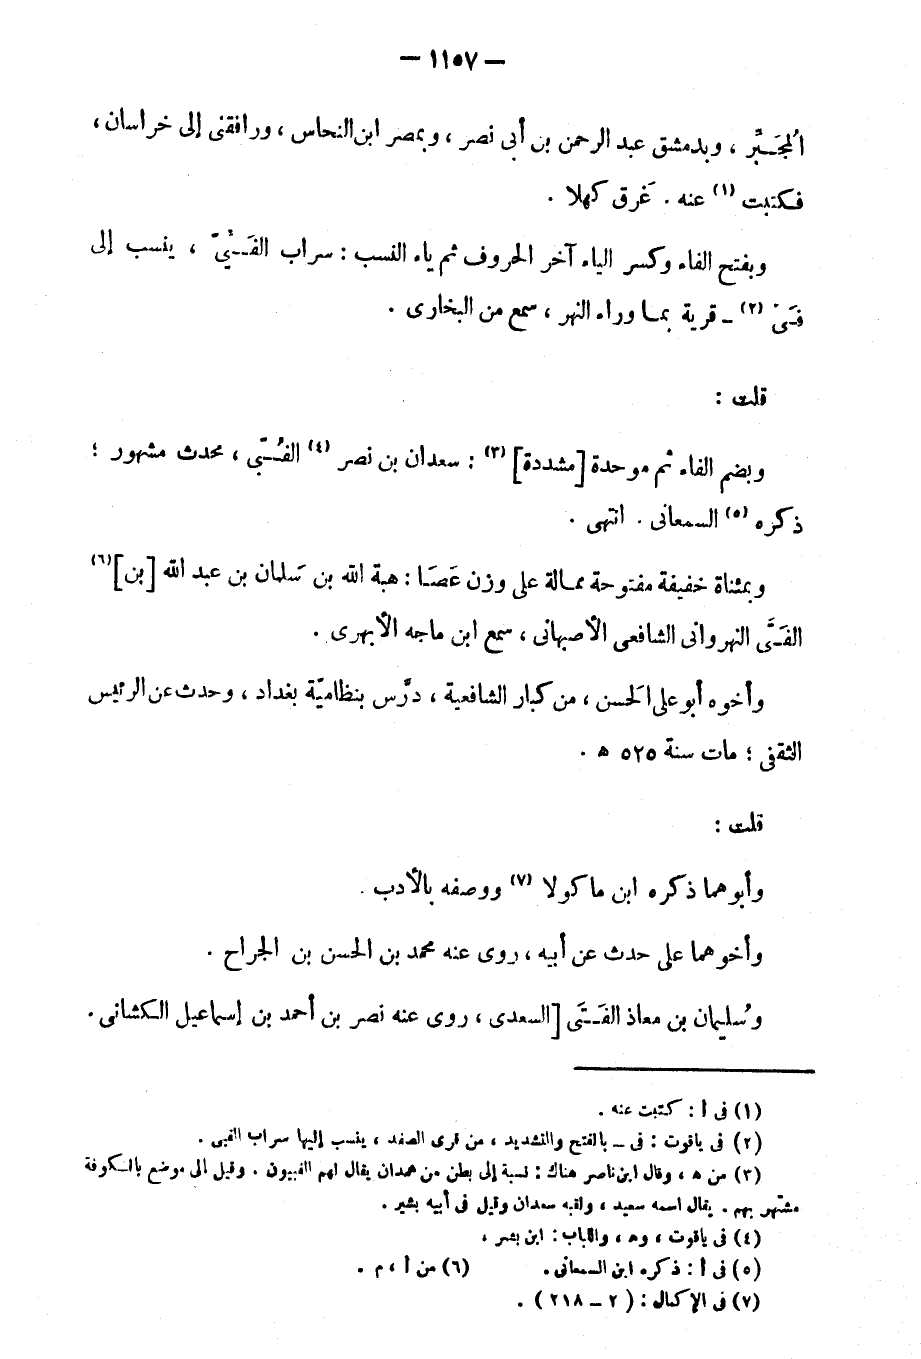 — ١١٥٧ —
المُجَبِّر ، وبدمشق عبد الرحمن بن أبى نصر ، وبمصر ابن النحاس ، ورافقنى إلى خراسان ،
فكتبت (١) عنه . غَرق كهلا .
وبفتح الفاء وكسر الياء آخر الحروف ثم ياء النسب : سراب الفَـيِيّ ، ينسب إلى
فَـىّ (٢) ـ قرية بمـا وراء النهر ، سمع من البخارى .
قلت :
وبضم الفاء ثم موحدة [مشددة] (٣) : سعدان بن نصر (٤) الفُـبِّى ، محدث مشهور ؛
ذكره (٥) السمعانى . انتهى .
وبمثناة خفيفة مفتوحة ممـالة على وزن عَصَـا : هبة الله بن سَلمان بن عبد الله [بن] (٦)
الفَـتَى النهروانى الشافعى الأصبهانى ، سمع ابن ماجه الأبهرى .
وأخوه أبو على الحسن ، من كبار الشافعية ، درَّس بنظاميّة بغداد ، وحدث عن الرئيس
الثقفى ؛ مات سنة ٥٢٥ ه .
قلت :
وأبوهما ذكره ابن ماكولا (٧) ووصفه بالأدب .
وأخوهما على حدث عن أبيه ، روى عنه محمد بن الحسن بن الجراح .
وسُليمان بن معاذ الفَـتَى [السعدى ، روى عنه نصر بن أحمد بن إسماعيل الكشانى .
(١) فى أ : كتبت عنه .
(٢) فى ياقوت : فى ــ بالفتح والتشديد ، من قرى الصغد ، ينسب إليها سراب الفيى .
(٣) من ه ، وقال ابن ناصر هناك : نسبة إلى بطن من همدان يقال لهم الفبيون . وقيل الى موضع بالكوفة
مشتهر بهم . يقال اسمه سعيد ، ولقبه سعدان وقيل فى أبيه بشير .
(٤) فى ياقوت ، وه ، واللباب : ابن بشر ،
(٥) فى أ : ذكره ابن السمعانى . (٦) من أ ، م .
(٧) فى الإكمال : (٢ ــ ٢١٨) .